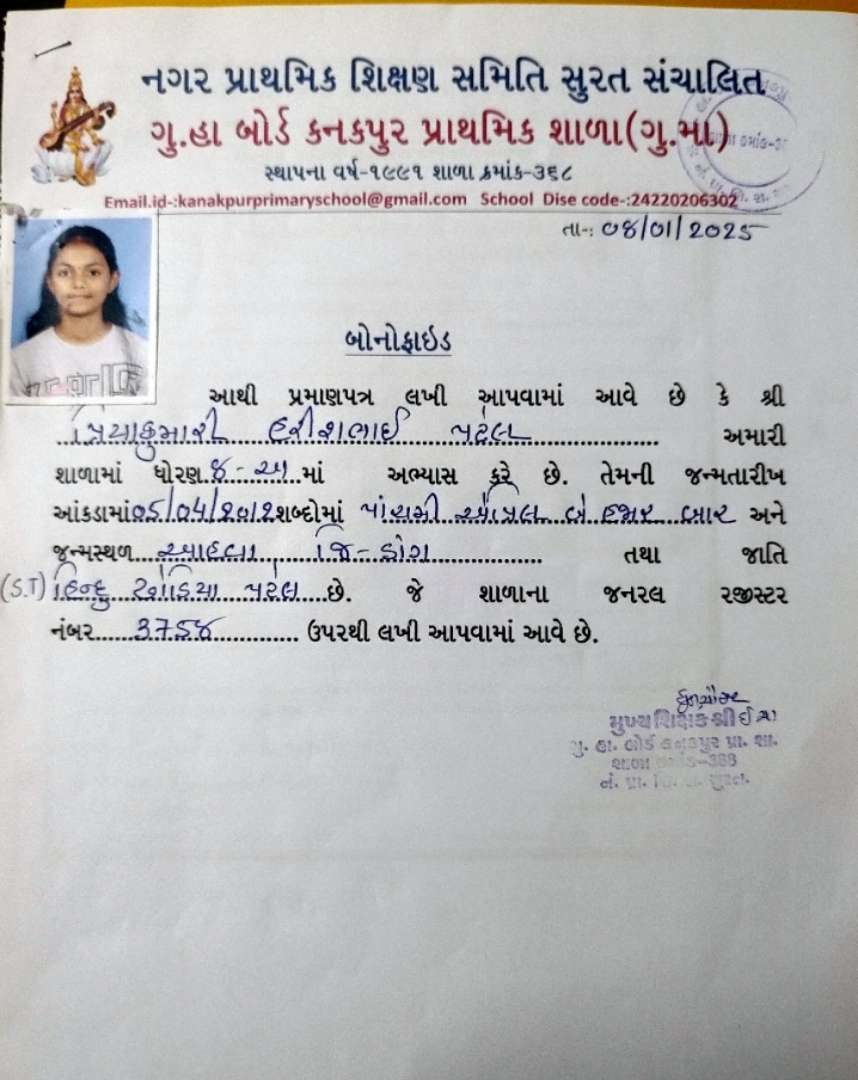 નગર પ્રાથમિક શિક્ષણ સમિતિ સુરત સંચાલિત
ગુ.હા બોર્ડ કનકપુર પ્રાથમિક શાળા(ગુ.મા)
સ્થાપના વર્ષ-૧૯૯૧ શાળા ક્રમાંક-૩૬૮
Email.id-:kanakpurprimaryschool@gmail.com School Dise code-:24220206302
તા-: ૦૪/01/2025
બોનોફાઇડ
આથી પ્રમાણપત્ર લખી આપવામાં આવે છે કે શ્રી
પ્રિયાકુમારી હરીશભાઈ પટેલ અમારી
શાળામાં ધોરણ માં અભ્યાસ કરે છે. તેમની જન્મતારીખ
આંકડામાં ૦5/૦4/૨૦૧૨ શબ્દોમાં પાંચમી એપ્રિલ બે હજાર બાર અને
જન્મસ્થળ જિ-ડાંગ તથા જાતિ
(S.T) હિન્દુ પટેલ છે. જે શાળાના જનરલ રજીસ્ટર
નંબર 375૪ ઉપરથી લખી આપવામાં આવે છે.
મુખ્ય શિક્ષક શ્રી
ગુ. હા. બોર્ડ કનકપુર પ્રા. શા.
શાળા